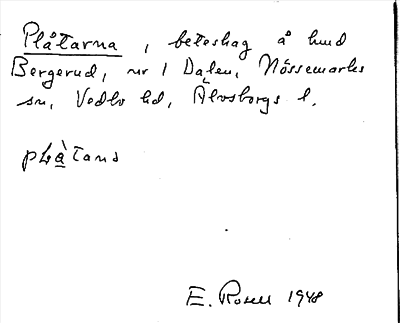 Plåtarna, beteshag å hmd
Bergerud, nr 1 Dalen, Nössemarks
sn, Vedbo hd, Älvsborgs l.
plàtana
E. Rosell 1948